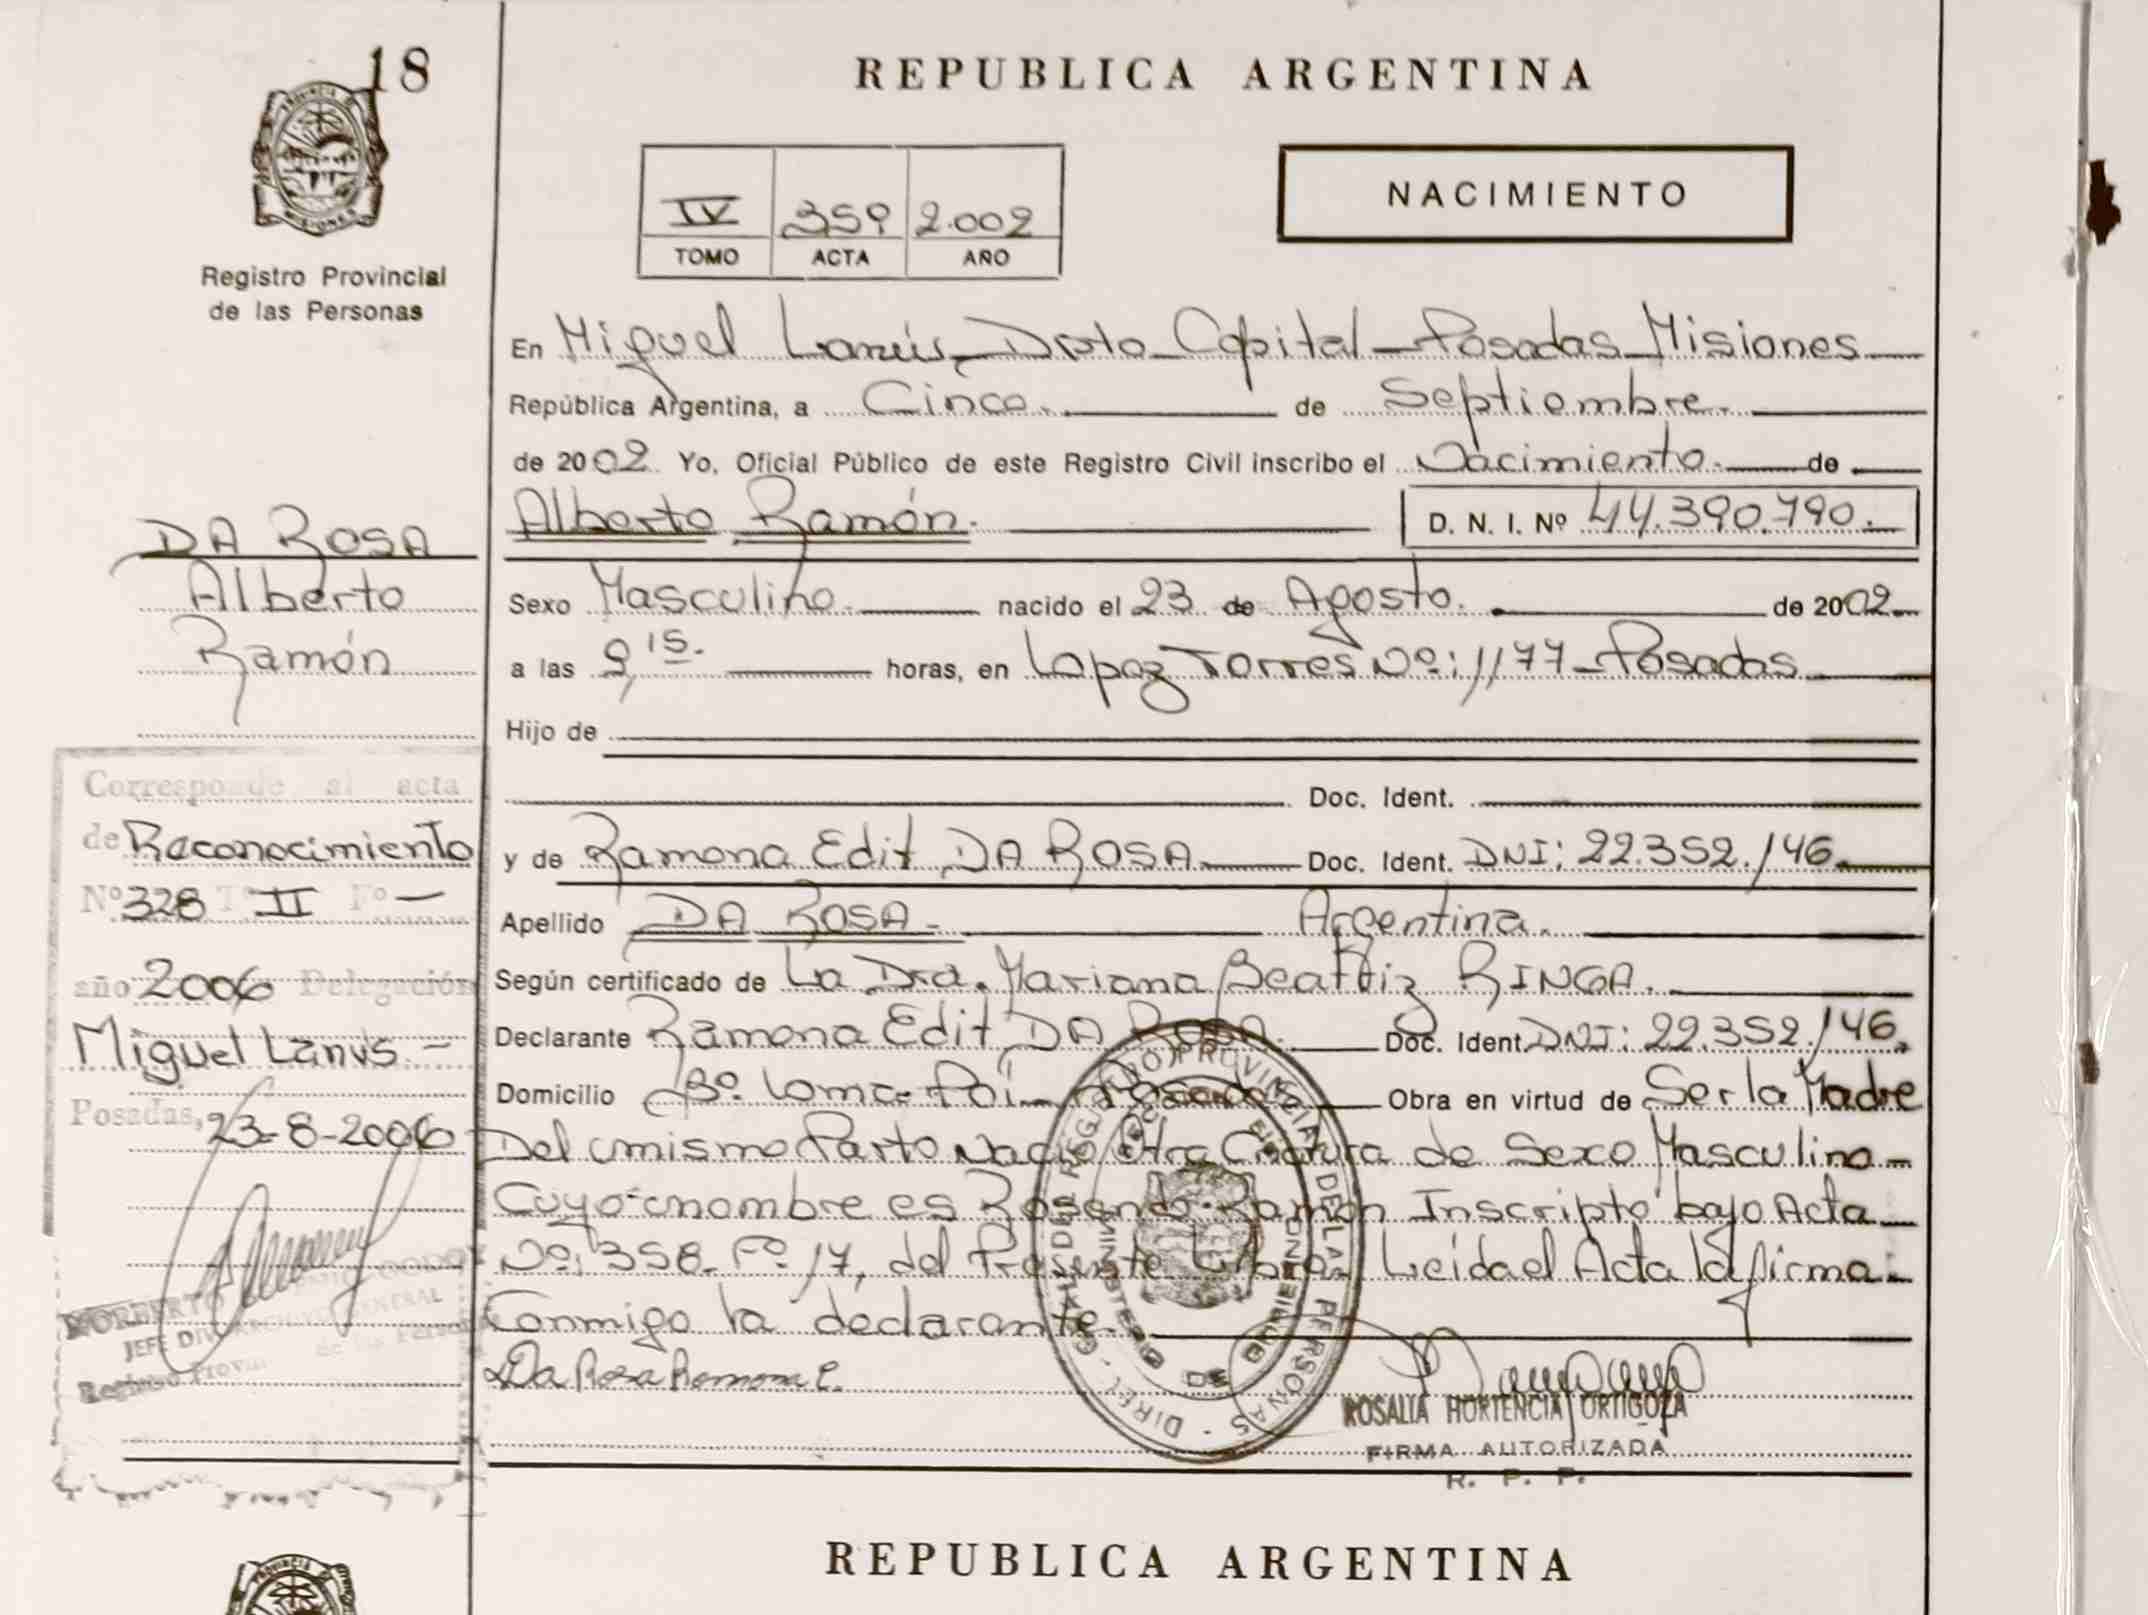 18
REPUBLICA ARGENTINA
PROVINCIA DE MISIONES
Registro Provincial
de las Personas
IV 359 2.002
TOMO ACTA AÑO
NACIMIENTO
En Miguel Lanús Dpto Capital - Posadas Misiones
República Argentina, a Cinco. de Septiembre.
de 2002 Yo, Oficial Público de este Registro Civil inscribo el Nacimiento. de
Alberto Ramón. D. N. I. Nº 44.390.790.
DA ROSA
Alberto
Ramón
Sexo Masculino. nacido el 23 de Agosto. de 2002
a las 9,15. horas, en Lopez Torres Nº: 1177 - Posadas
Hijo de
Doc. Ident.
y de Ramona Edit DA ROSA Doc. Ident. DNI: 22.352.146.
Apellido DA ROSA. Argentina.
Según certificado de La Dra. Mariana Beatriz RINGA.
Declarante Ramona Edit DA ROSA. Doc. Ident. DNI: 22.352.146.
Domicilio Bº. Loma Poi - Posadas Obra en virtud de Ser la Madre
Del mismo Parto Nacio Otra Criatura de Sexo Masculino -
Cuyo nombre es Rosendo Ramón Inscripto bajo Acta
Nº: 358 - Fº 17, del Presente Libro. Leida el Acta la firma
Conmigo la declarante.
Da Rosa Ramona E.
ROSALIA HORTENCIA ORTIGOZA
FIRMA AUTORIZADA
R. P. P.
Corresponde al acta
de Reconocimiento
Nº 328 Tº II Fº -
año 2006 Delegación
Miguel Lanus -
Posadas, 23-8-2006
NORBERTO GODOY
JEFE GENERAL
Registro Provin de las Personas
DIREC. GRAL. DEL REGISTRO PROVINCIAL DE LAS PERSONAS
MINISTERIO DE GOBIERNO
REPUBLICA ARGENTINA
PROVINCIA